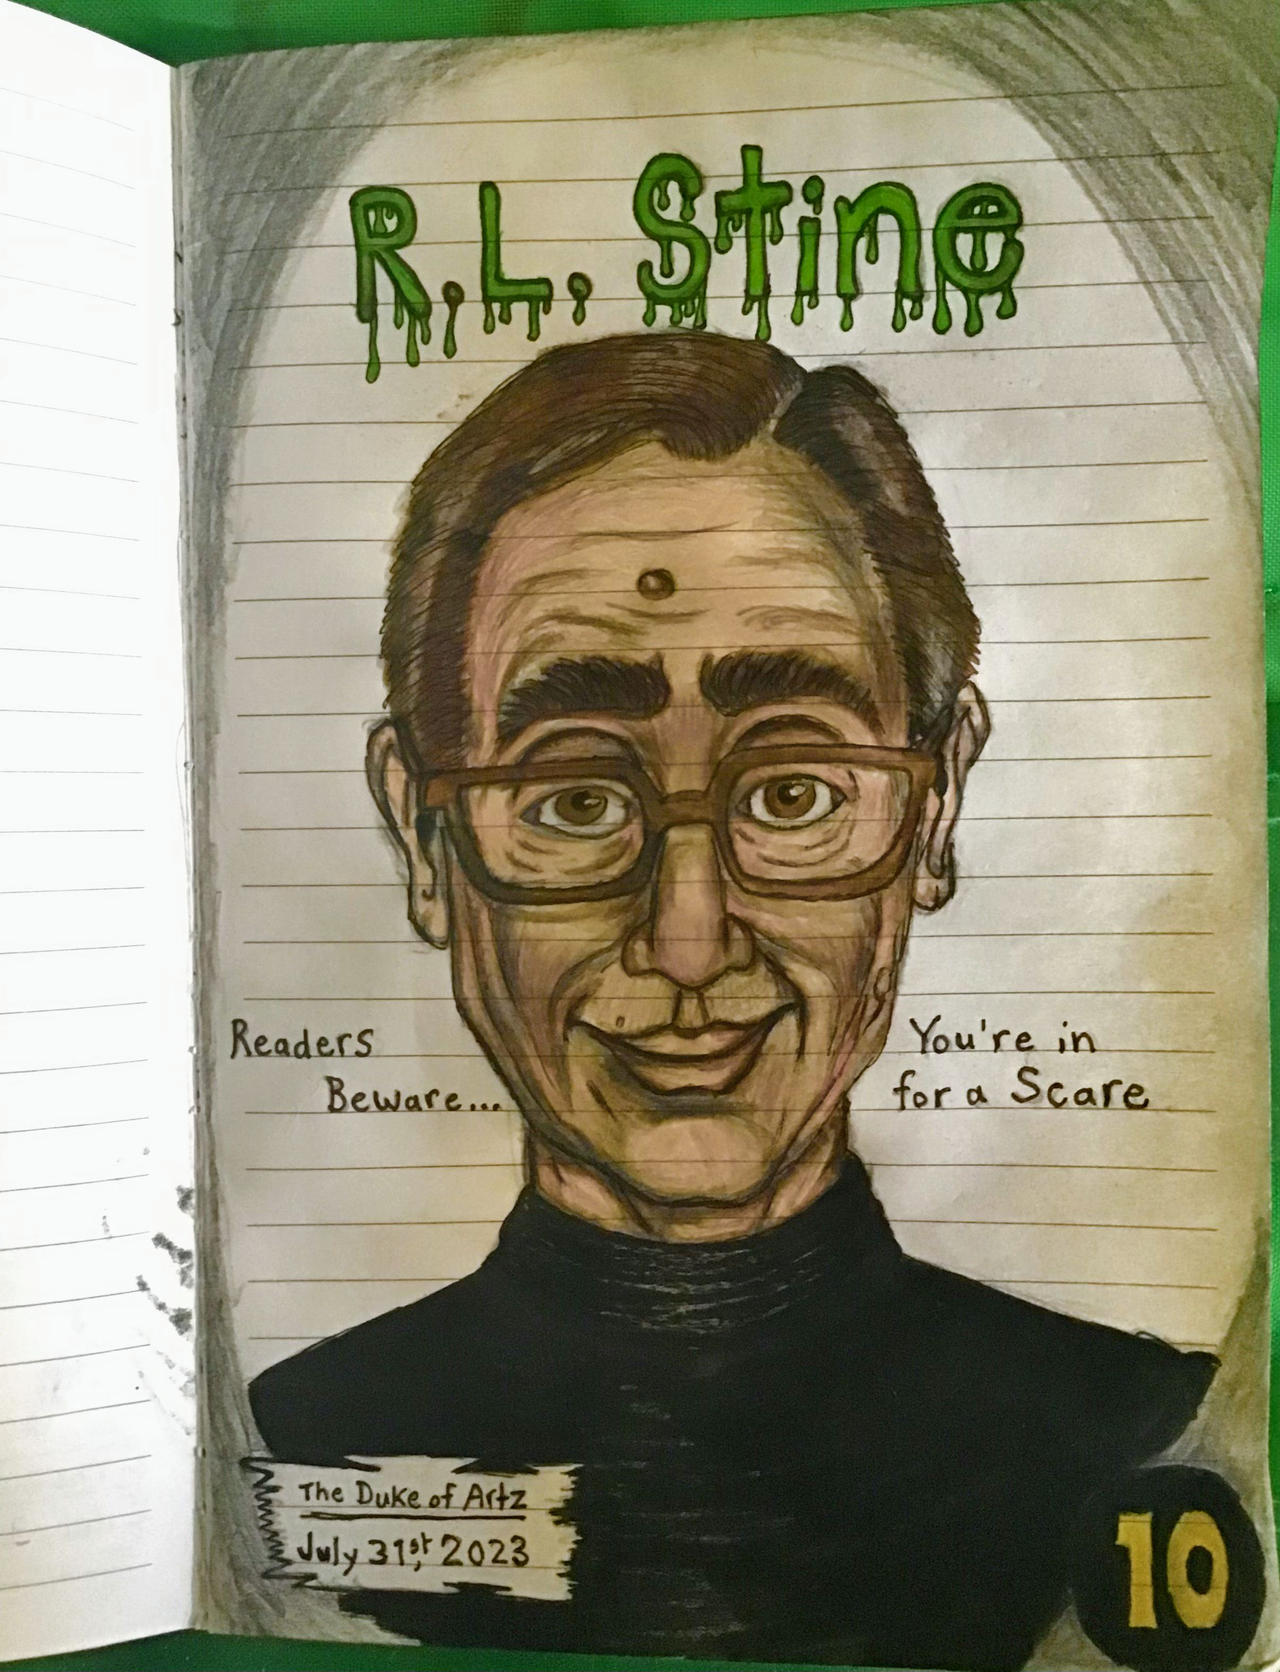 R.L. Stine
Readers
Beware...
You're in
for a Scare
The Duke of Artz
July 31st, 2023
10